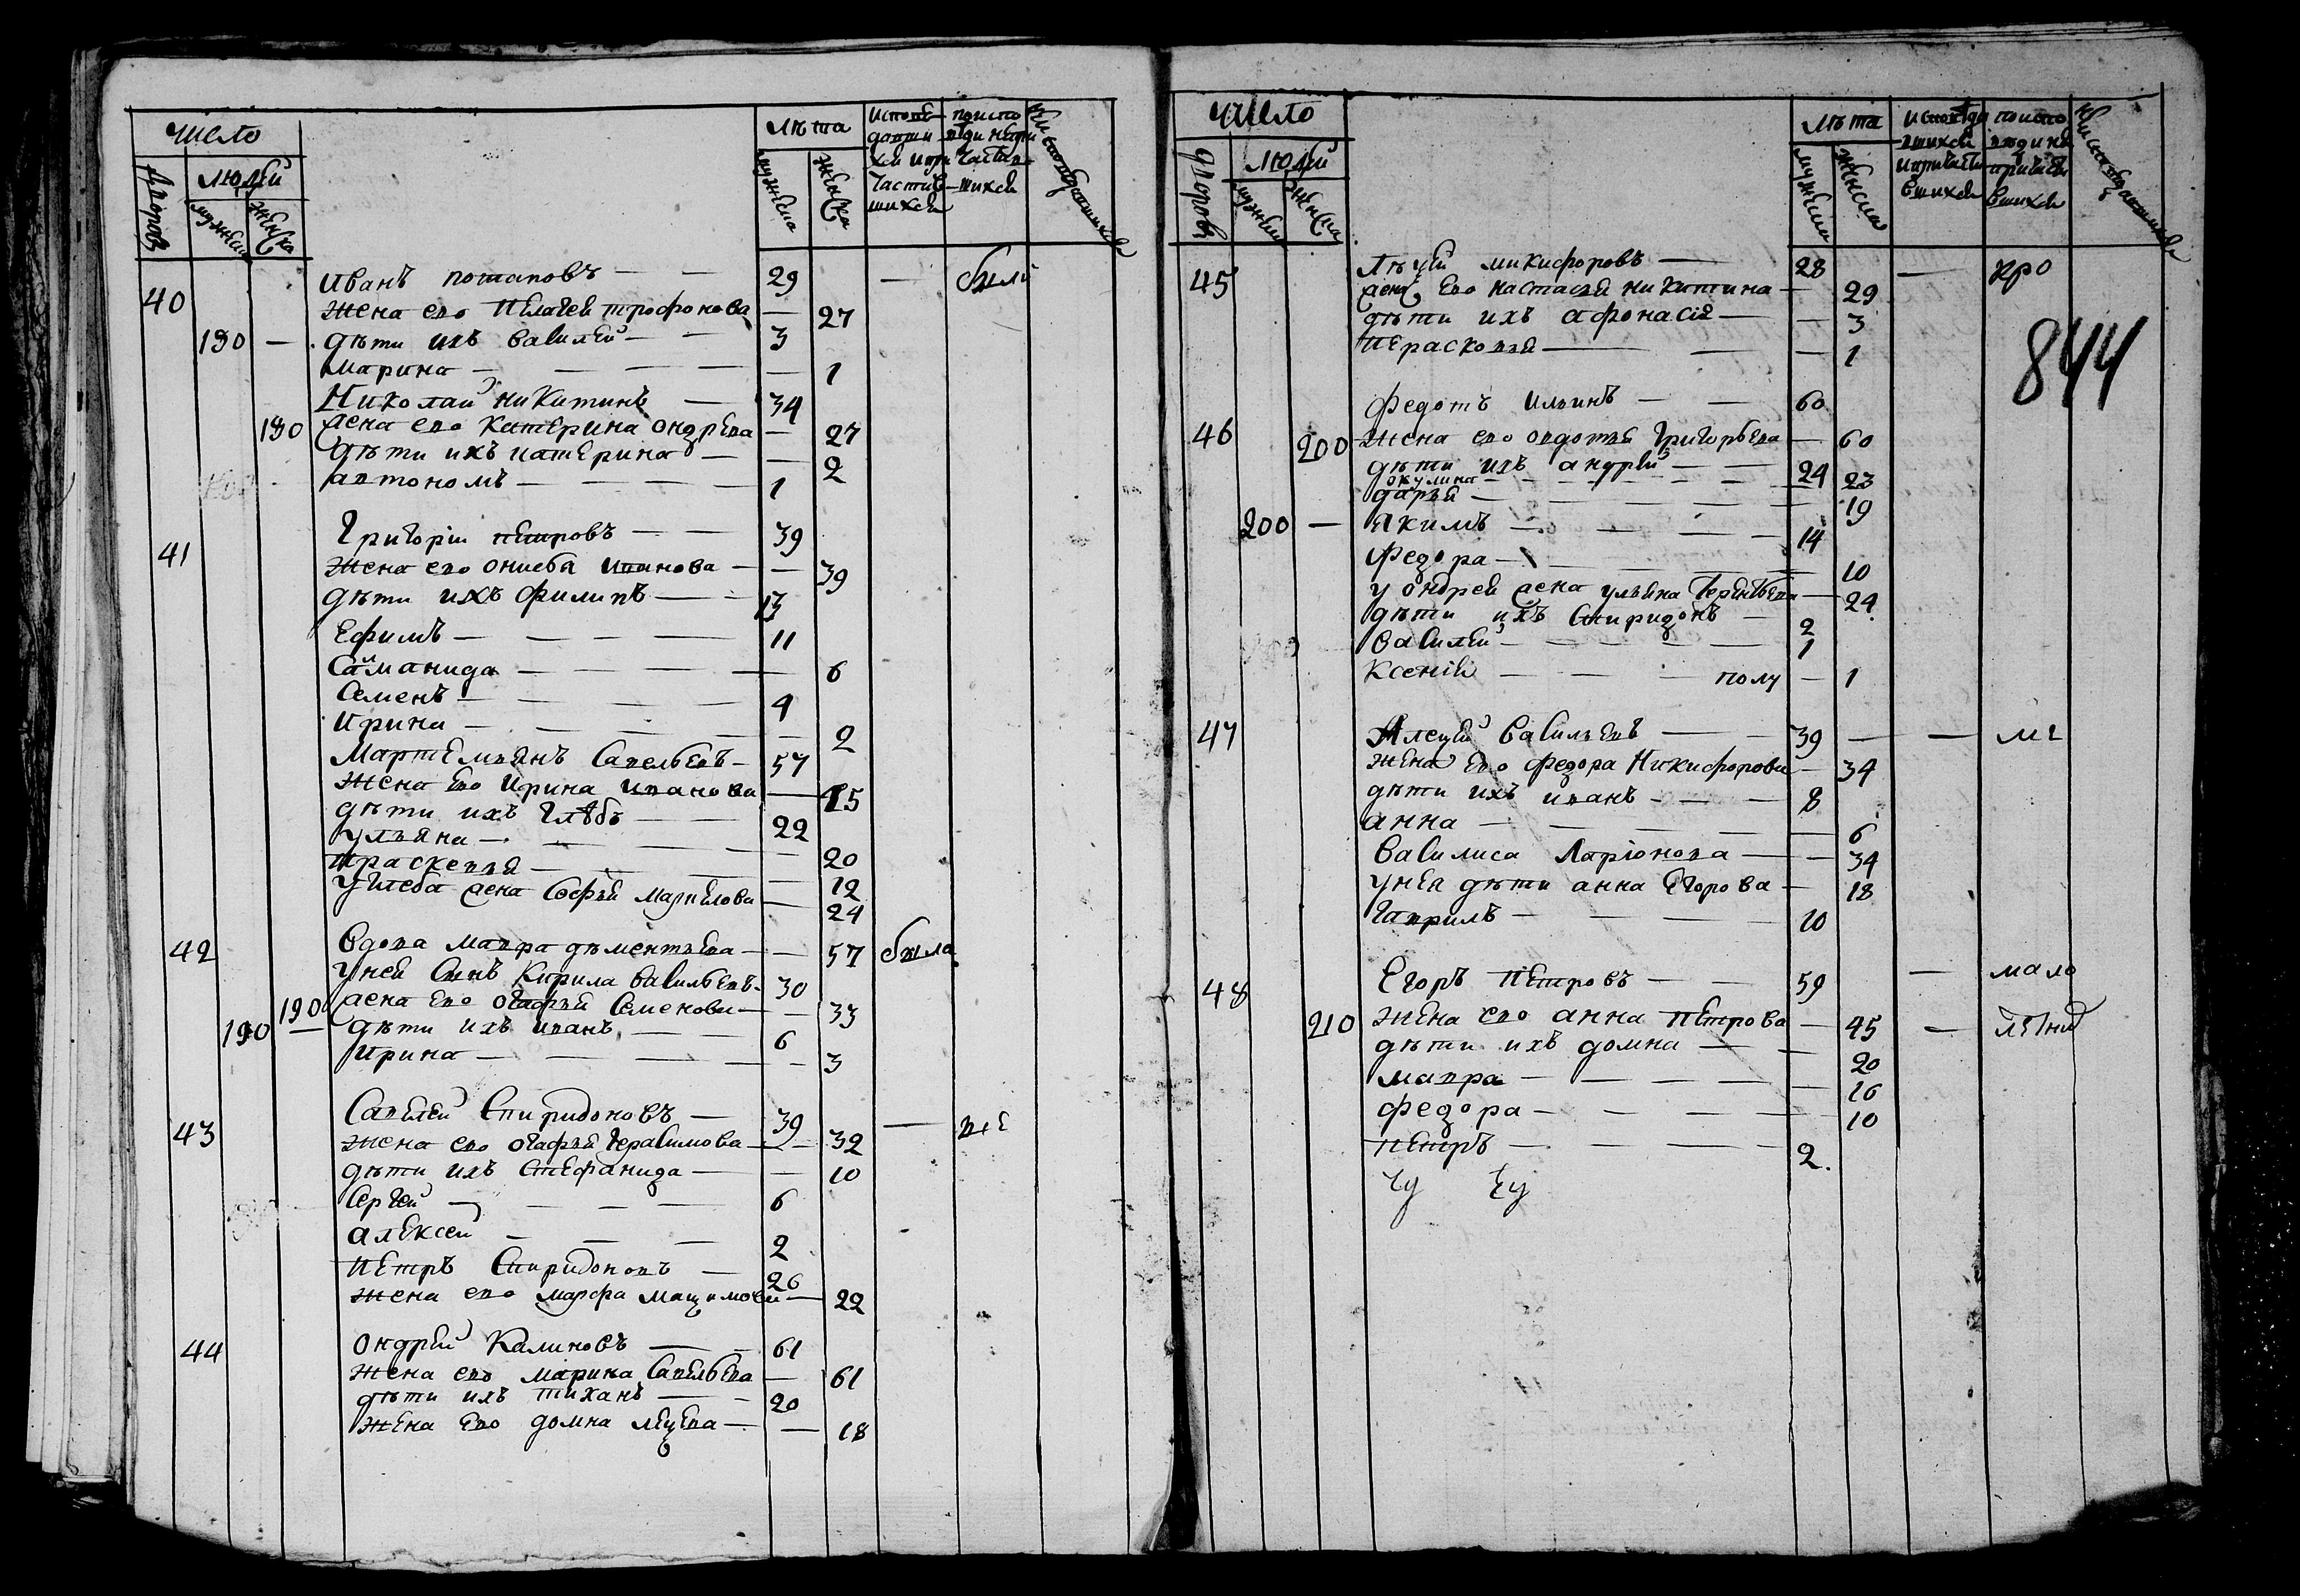 число
дворовъ
людей
мужеска
женска
лѣта
мужеска
женска
40 Иванъ потаповъ — — 29 — были
жена ево Пелагея трофонова — 27
190 — дѣти ихъ василей — — 3
Марина — — — — 1
Николай никитинъ — 34
190 жена ево Катерина ондрева — 27
дѣти ихъ катерина — — 2
автономъ — — — — 1
41 Григории петровъ — — 39
жена ево Иванова — — 39
дѣти ихъ филипъ — — 13
Ефимъ — — — — 11
Саманида — — — — 6
Семенъ — — — — 4
Ирина — — — — — 2
Мартемьянъ Савельевъ — 57
жена ево Ирина Иванова — 45
дѣти ихъ Глѣбъ — — 22
ульяна — — — — 20
праскевья — — — — 12
у Глеба жена Софья — 24
42 вдова мавра дѣментьева — — 57 была
у ней сынъ Кирила васильевъ — 30
190 жена ево огафья Семенова — — 33
190 — дѣти ихъ иванъ — — 6
Ирина — — — — 3
43 Савелей Спиридоновъ — 39 — же
жена ево огафья Герасимова — — 32
дѣти ихъ Стефанида — — 10
Сергей — — — — 6
алексей — — — 2
Петръ Спиридоновъ — 26
жена ево марфа — 22
44 ондрей Калиновъ — — 61
жена ево марина Савельева — 61
дѣти ихъ тиханъ — — 20
жена ево домна — — 18
число
дворовъ
людей
мужеска
женска
лѣта
мужеска
женска
844
45 микифоровъ — 28 — кро
жена ево настасья никитина — 29
дѣти ихъ афонасія — — 3
Перасковья — — — 1
федотъ ильинъ — — 60
46 200 жена ево овдотья Григорьева — 60
дѣти ихъ андрей — — 24
окулина — — — 23
дарья — — — 19
200 — якимъ — — — — 14
федора — — — 10
у ондрея жена ульяна — 24
дѣти ихъ Спиридонъ — 2
василей — — — — 1
Ксенія — — — полу — 1
47 Алецей васильевъ — — 39 — — ме
жена ево федора Никифорова — 34
дѣти ихъ иванъ — — — 8
анна — — — — — 6
василиса Ларіонова — — 34
у нея дѣти анна Егорова — 18
Гаврилъ — — — 10
48 Егоръ петровъ — — 59 — мало
210 жена ево анна петрова — 45 — лѣтни
дѣти ихъ домна — — 20
мавра — — — — 16
федора — — — — 10
петръ — — — — 2